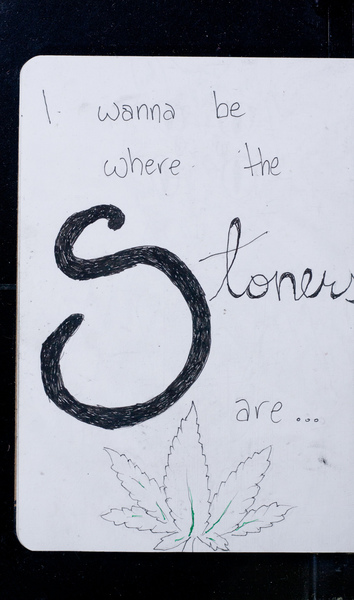 I wanna be
where the
Stoners
are...